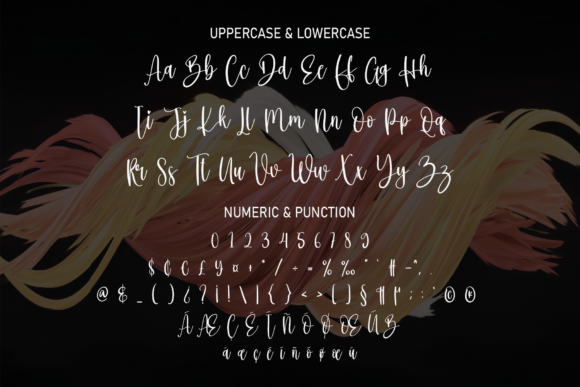 UPPERCASE & LOWERCASE
Aa Bb Cc Dd Ee Ff Gg Hh
Ii Jj Kk Ll Mm Nn Oo Pp Qq
Rr Ss Tt Uu Vv Ww Xx Yy Zz
NUMERIC & PUNCTION
0 1 2 3 4 5 6 7 8 9
$ ¢ € £ ¥ ¤ + * / ÷ = % ‰ " ' # – ^ , .
@ & _ ( ) ¿ ? ¡ ! \ | { } < > [ ] § ¶ : ; ' © ®
Á Æ Ç É Í Ñ Ó Ø Œ Ú
á æ ç é í ñ ó ø œ ú